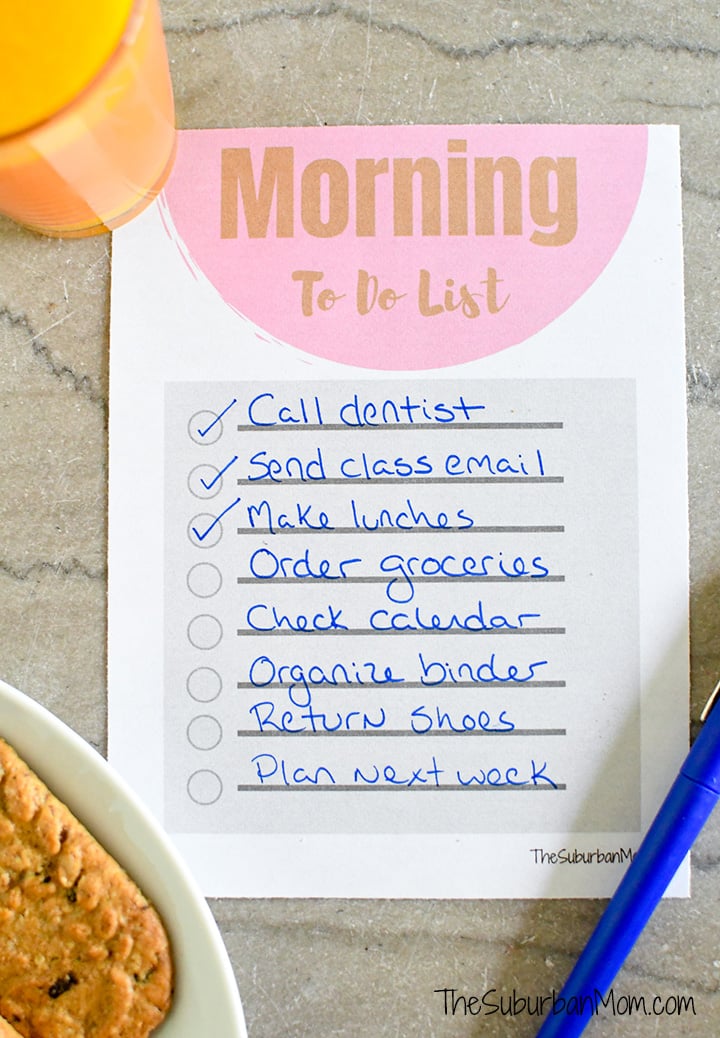 Morning
To Do List
Call dentist
Send class email
Make lunches
Order groceries
Check calendar
Organize binder
Return shoes
Plan next week
TheSuburbanMo
TheSuburbanMom.com